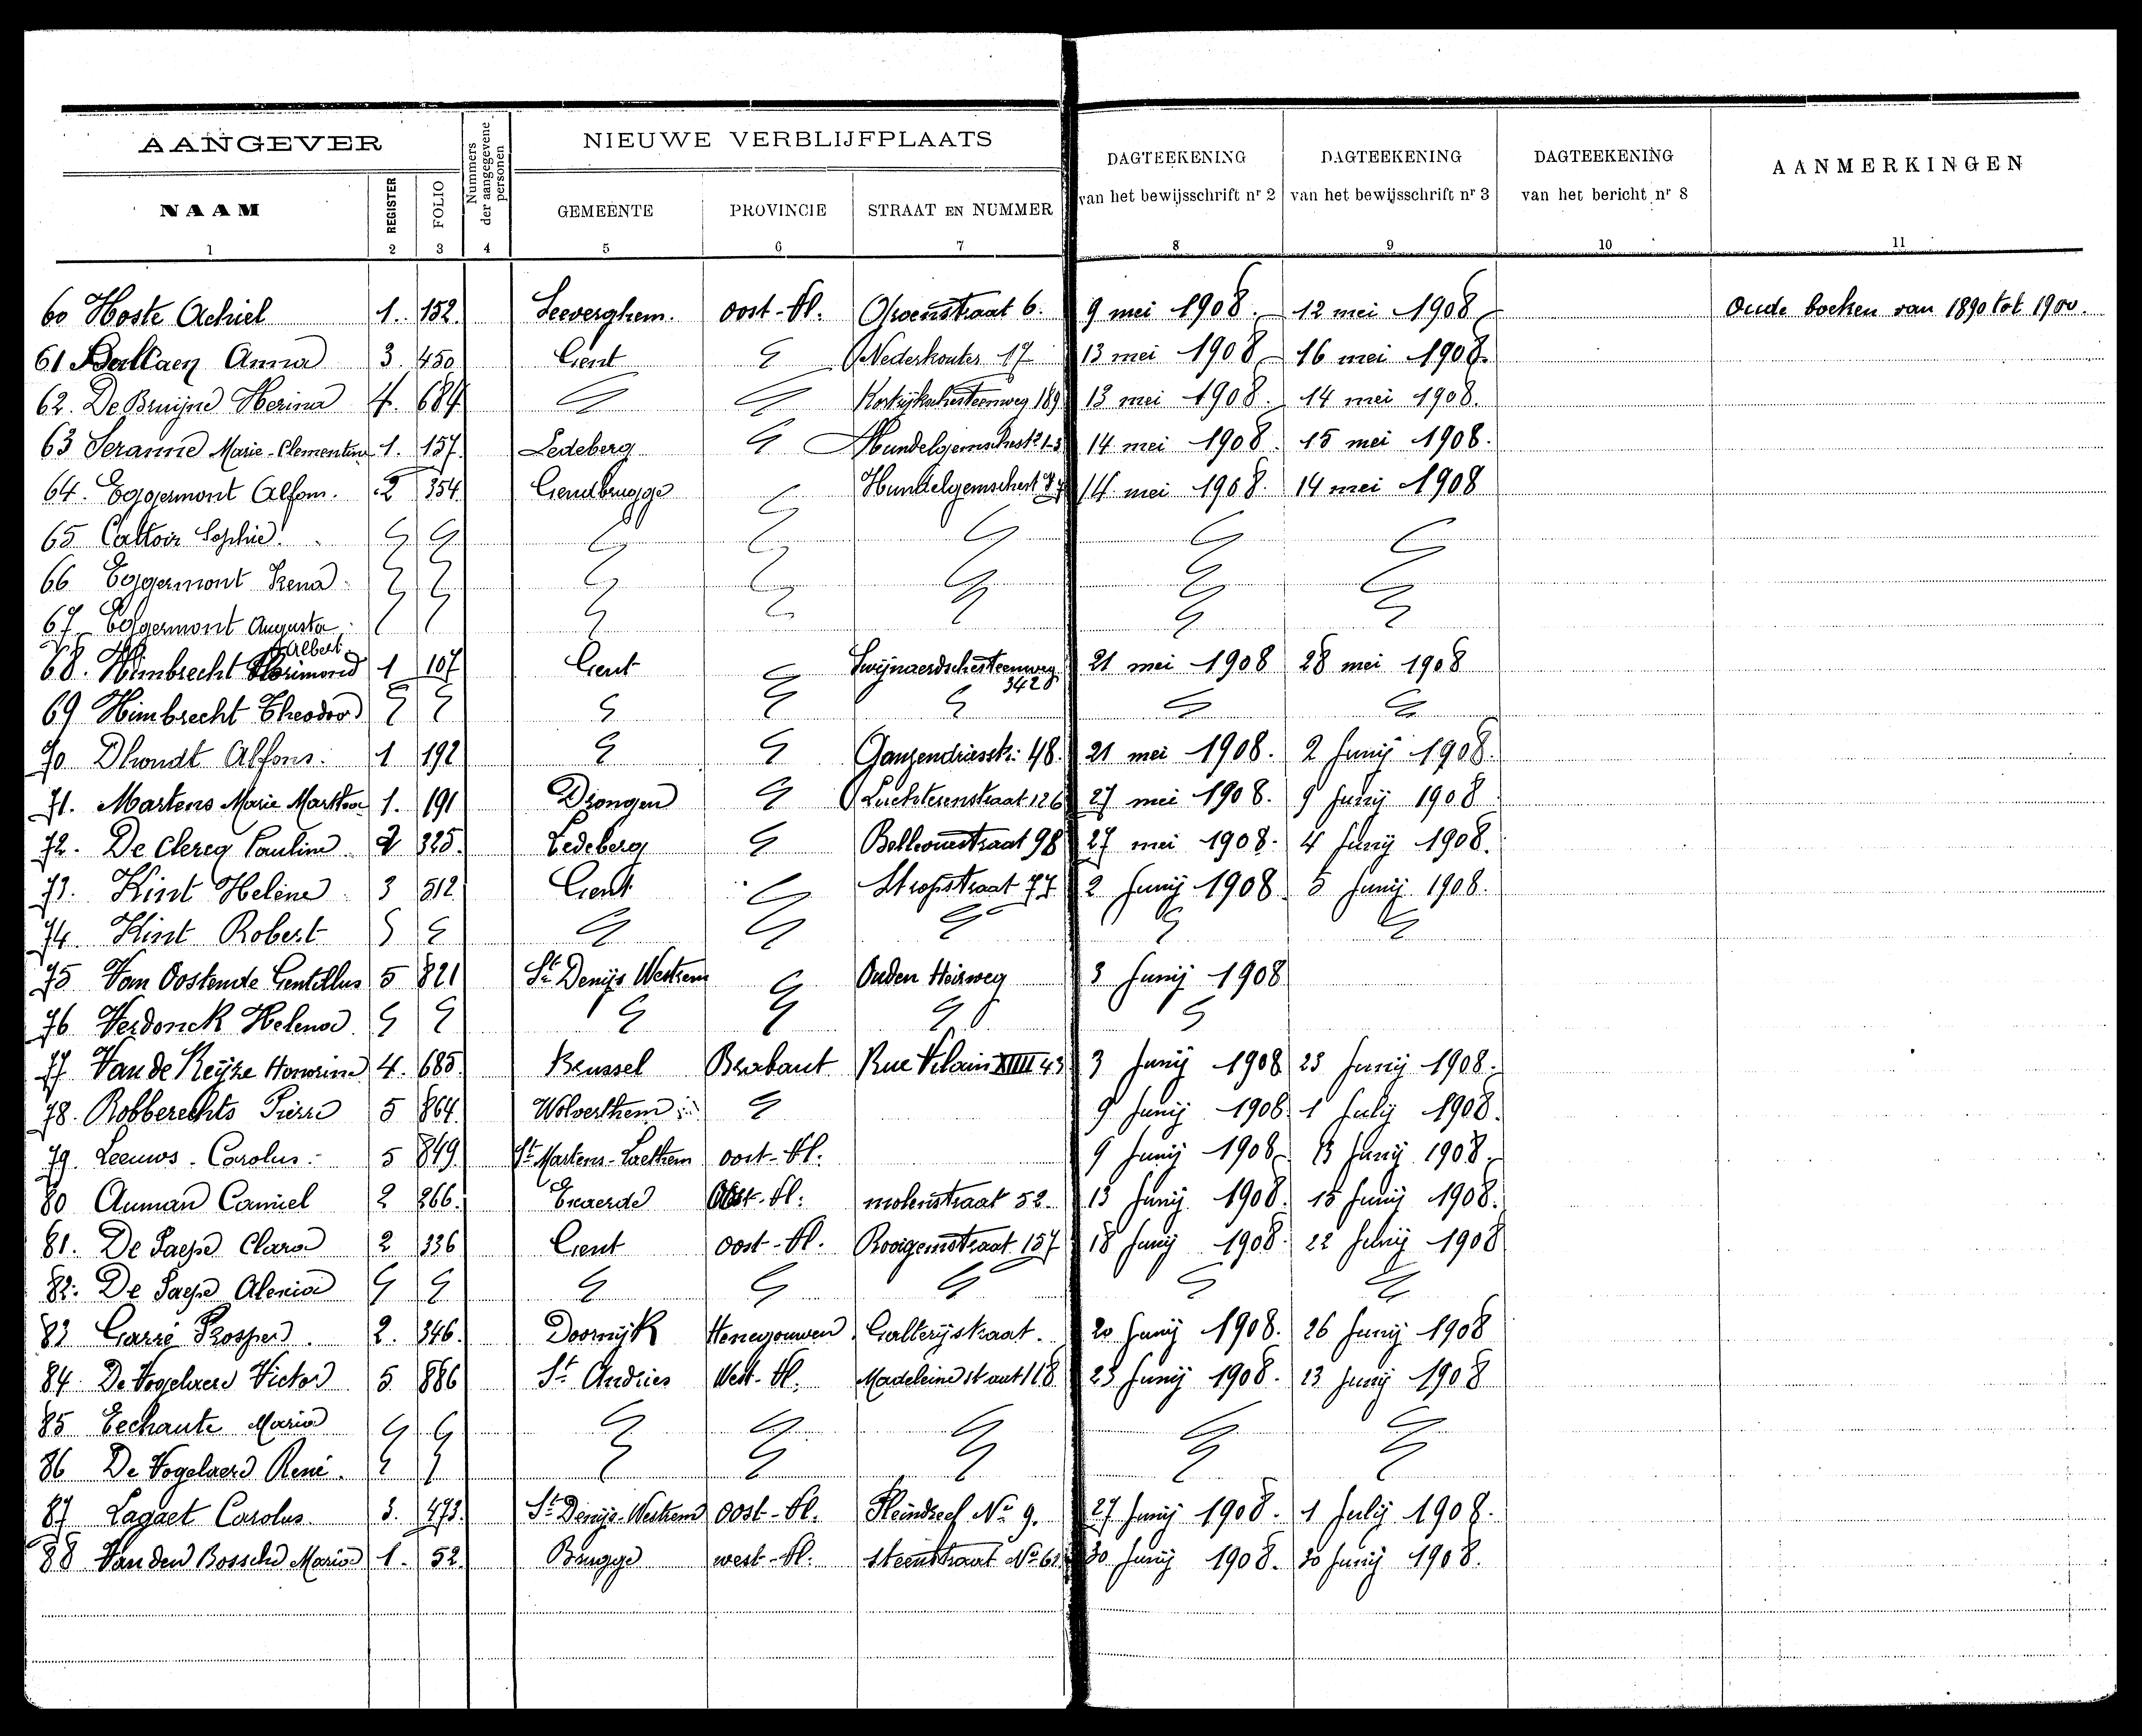 AANGEVER
Nummers der aangegevene personen
NIEUWE VERBLIJFPLAATS
DAGTEEKENING van het bewijsschrift nr 2
DAGTEEKENING van het bewijsschrift nr 3
DAGTEEKENING van het bericht nr 8
AANMERKINGEN
NAAM REGISTER FOLIO GEMEENTE PROVINCIE STRAAT EN NUMMER
1 2 3 4 5 6 7 8 9 10 11
60 Hoste Achiel 1. 152. Seeverghem. oost-Vl. Groenstraat 6. 9 mei 1908. 12 mei 1908 Oude boeken van 1890 tot 1900.
61 Anna 3 450 Gent Nederkouter 17 13 mei 1908 16 mei 1908
62. De Bruijne Herina 4. 684 Kortrijkschesteenweg 189 13 mei 1908. 14 mei 1908.
63 Seranne Marie-Clementine 1. 157. Ledeberg 14 mei 1908. 15 mei 1908.
64. Eggermont Alfons. 2 354. Gendbrugge 14 mei 1908. 14 mei 1908
65 Cattoir Sophie
66 Eggermont Irena
67 Eggermont Augusta
Albert
68. Himbrecht Florimond 1 107 Gent Swijnaerdschesteenweg 21 mei 1908 28 mei 1908
69 Himbrecht Theodoor
70 Dhondt Alfons. 1 192 Ganzendriesstr: 48. 21 mei 1908. 2 Junij 1908.
71. Martens Marie Martha 1. 191 Drongen Luchterenstraat 126 27 mei 1908. 9 Junij 1908
72. De Clercq Pauline 2 325. Ledeberg Bellevuestraat 98 27 mei 1908. 4 Junij 1908.
73. Kint Helène 3 512 Gent Stropstraat 77 2 Junij 1908 5 Junij 1908.
74. Kint Robert
75 Van Oostende Gentillus 5 821 St Denijs Westrem Ouden Heirweg 3 Junij 1908
76 Verdonck Helena
77 Van de Keijze Honorine 4. 685. Brussel Brabant Rue Vilain XIIII 43 3 Junij 1908 23 Junij 1908.
78. Robberechts Pierre 5 864. Wolverthem 9 Junij 1908 1 Julij 1908.
79. Leeuws Carolus. 5 849. St Martens-Laethem oost-Vl. 9 Junij 1908 13 Junij 1908.
80 Auman Camiel 2 266. Exaerde Oost-Vl: molenstraat 52. 13 Junij 1908. 15 Junij 1908.
81. De Paepe Clara 2 336 Gent oost-Vl. Rooigemstraat 157 18 Junij 1908. 22 1908
82. De Paepe
83 Carré Prosper. 2. 346. Doornijk Henegouwen Gallerijstraat. 20 Junij 1908. 26 Junij 1908
84. De Vogelaere Victor 5 886 St Andries West-Vl. Madeleinestraat 118 23 Junij 1908. 13 Junij 1908
85 Eechaute Maria
86 De Vogelaere René.
87 Lagaet Carolus 3. 473. St Denijs-Westrem oost-Vl. No 9. 27 Junij 1908. 1 Julij 1908.
88 Van den Bossche Maria 1. 52. Brugge west-Vl. steenstraat 30 Junij 1908. 30 Junij 1908.